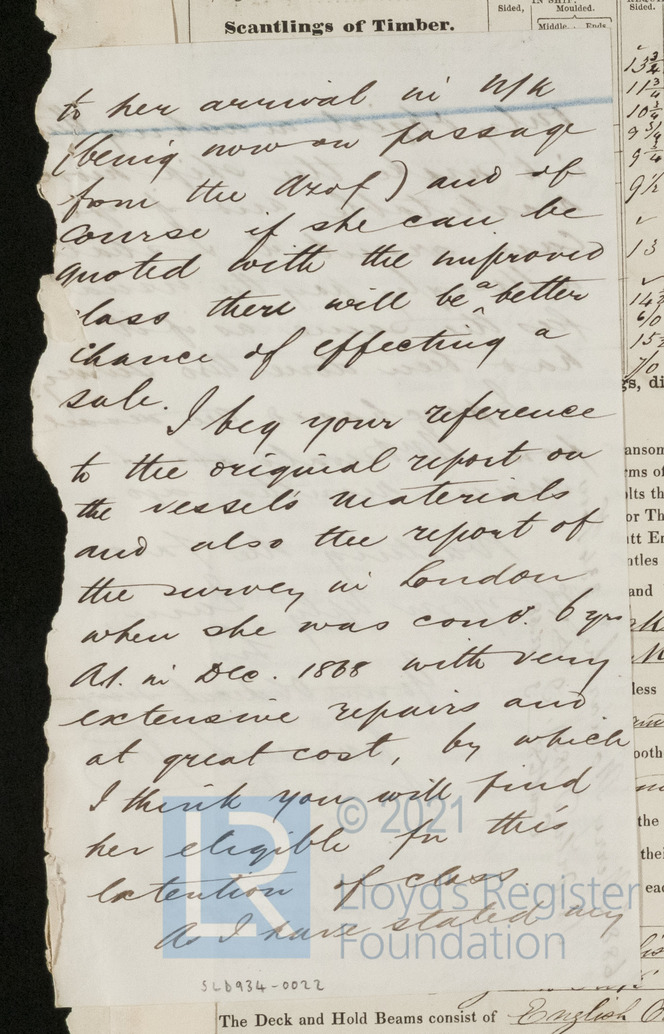 Scantlings of Timber.
Sided,
IN SHIP.
Moulded.
Middle. Ends
Sided.
to her arrival in U/K
(being now on passage
from the Azof) and of
course if she can be
quoted with the improved
class there will be a better
chance of effecting a
sale.
I beg your reference
to the original report on
the vessels materials
and also the report of
the survey in London
when she was cond. 6 yrs
A1. in Dec. 1868 with very
extensive repairs and
at great cost, by which
I think you will find
her eligible for this
extention of class
As I have stated my
© 2021
LR
Lloyd's Register
Foundation
SLD934-0022
The Deck and Hold Beams consist of English